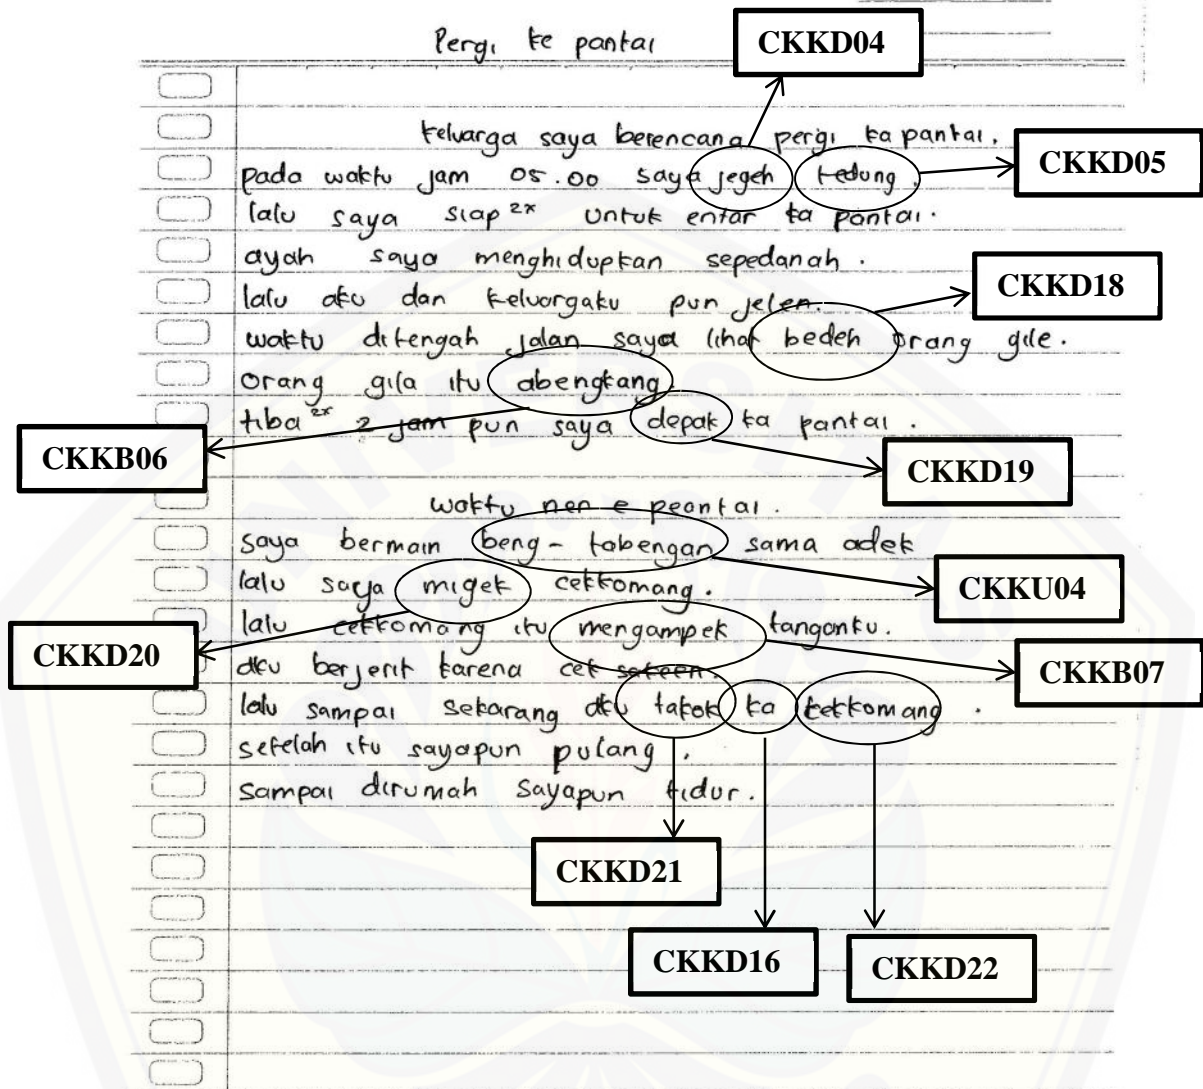 Pergi ke pantai
CKKD04
keluarga saya berencana pergi ka pantai.
CKKD05
pada waktu jam 05.00 saya jegeh tedung.
lalu saya siap 2x untuk entar ka pantai.
ayah saya menghidupkan sepedanah.
CKKD18
lalu aku dan keluargaku pun jelen.
waktu ditengah jalan saya lihat bedeh orang gile.
orang gila itu abengkang.
tiba 2x 2 jam pun saya depak ka pantai.
CKKB06
CKKD19
waktu nen e peantai.
saya bermain beng-tabengan sama adek
CKKU04
lalu saya migek cekkomang.
lalu cekkomang itu mengampek tanganku.
CKKD20
CKKB07
aku berjerit karena cek sakeen.
lalu sampai sekarang aku takok ka kekkomang.
setelah itu sayapun pulang.
sampai dirumah sayapun tidur.
CKKD21
CKKD16
CKKD22